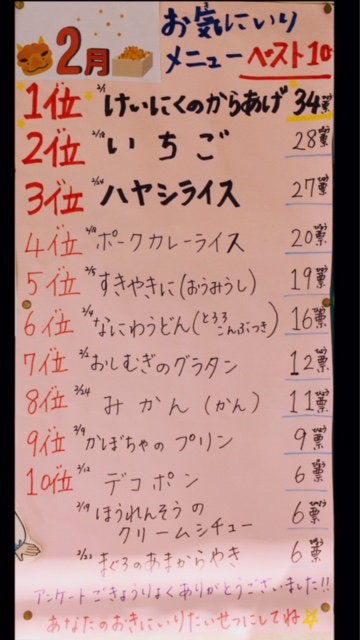 2月
お気にいり
メニューベスト10
1位 2/1 けいにくのからあげ 34票
2位 いちご 28票
3位 ハヤシライス 27票
4位 ポークカレーライス 20票
5位 2/5 すきやきに(おうみうし) 19票
6位 2/4 なにわうどん(とろろこんぶつき) 16票
7位 2/2 おしむぎのグラタン 12票
8位 2/24 みかん(かん) 11票
9位 2/9 かぼちゃのプリン 9票
10位 2/12 デコポン 6票
2/19 ほうれんそうの
クリームシチュー 6票
2/22 まぐろのあまからやき 6票
アンケートごきょうりょくありがとうございました!!
あなたのおきにいりたいせつにしてね